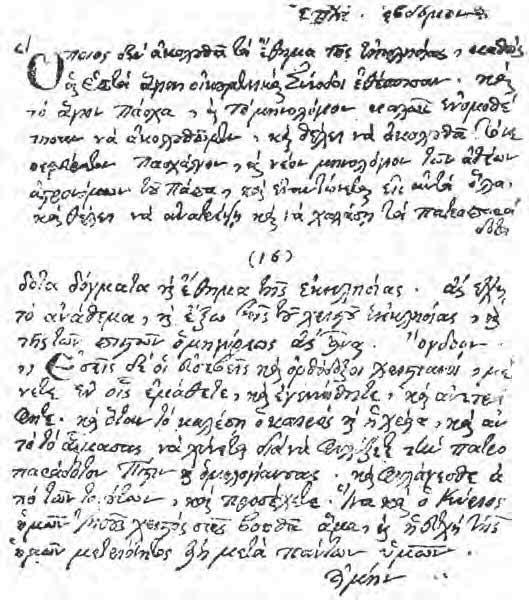 ἑβδομον
Ὅποιος δὲν ἀκολουθᾶ τὰ ἔθημα τῆς ἐκκλησίας, καθὼς
ἡ ἑπτὰ ἅγιαι οἰκουμενικαὶ Σύνοδοι ἐθέσπισαν. καὶ
τὸ ἅγιον πάσχα, καὶ τὸ μηνολόγιον καλῶς ἐνομοθέ
τησαν νὰ ἀκολουθοῦμεν, καὶ θέλει νὰ ἀκολουθᾶ τὸ νε
οεφεύρετον πασχάλιον, καὶ νέον μηνολόγιον τῶν ἀθέων
ἀστρονόμων τοῦ πάπα, καὶ ἐναντιώνεται εἰς αὐτὰ ὅλα,
καὶ θέλει νὰ ἀνατρέψῃ καὶ νὰ χαλάσῃ τὰ πατροπαρά
δοτα
(16)
δοτα δόγματα καὶ ἔθημα τῆς ἐκκλησίας. ἂς ἔχῃ
τὸ ἀνάθεμα, καὶ ἔξω τῆς τοῦ χριστοῦ ἐκκλησίας, καὶ
τῆς τῶν πιστῶν ὁμηγύρεως ἂς ἦναι. Ὄγδοον.
,, Ἐσεῖς δὲ οἱ εὐσεβεῖς καὶ ὀρθόδοξοι χριστιανοί, μέ
νετε ἐν οἷς ἐμάθετε, καὶ ἐγεννήθητε, καὶ ἀνετρά
φητε. καὶ ὅταν τὸ καλέσῃ ὁ καιρὸς καὶ ἡ χρεία, καὶ αὐ
τὸ τὸ αἷμα σας νὰ χύνετε διὰ νὰ φυλάξετε τὴν πατρο
παράδοτον Πίστιν καὶ ὁμολογίαν σας. καὶ φυλάγεσθε ἀ
πὸ τῶν τοιούτων, καὶ προσέχετε. Ἵνα καὶ ὁ Κύριος
ἡμῶν Ἰησοῦς χριστὸς σᾶς βοηθᾶ ἅμα, καὶ ἡ εὐχὴ τῆς
ἡμῶν μετριότητος εἴη μετὰ πάντων ὑμῶν.
Ἀμήν